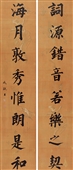 詞源錯音若樂之契
海月敦秀惟朗是和